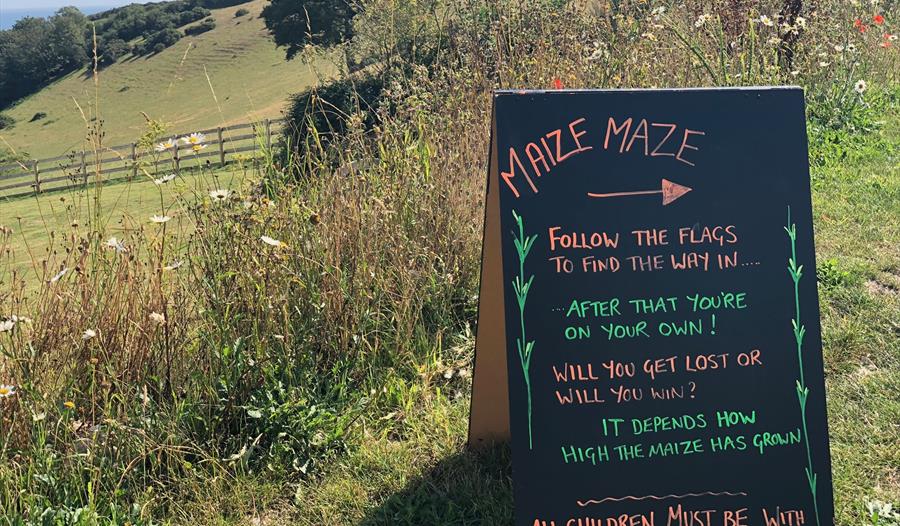 MAIZE MAZE
FOLLOW THE FLAGS
TO FIND THE WAY IN.....
...AFTER THAT YOU'RE
ON YOUR OWN!
WILL YOU GET LOST OR
WILL YOU WIN?
IT DEPENDS HOW
HIGH THE MAIZE HAS GROWN
ALL CHILDREN MUST BE WITH